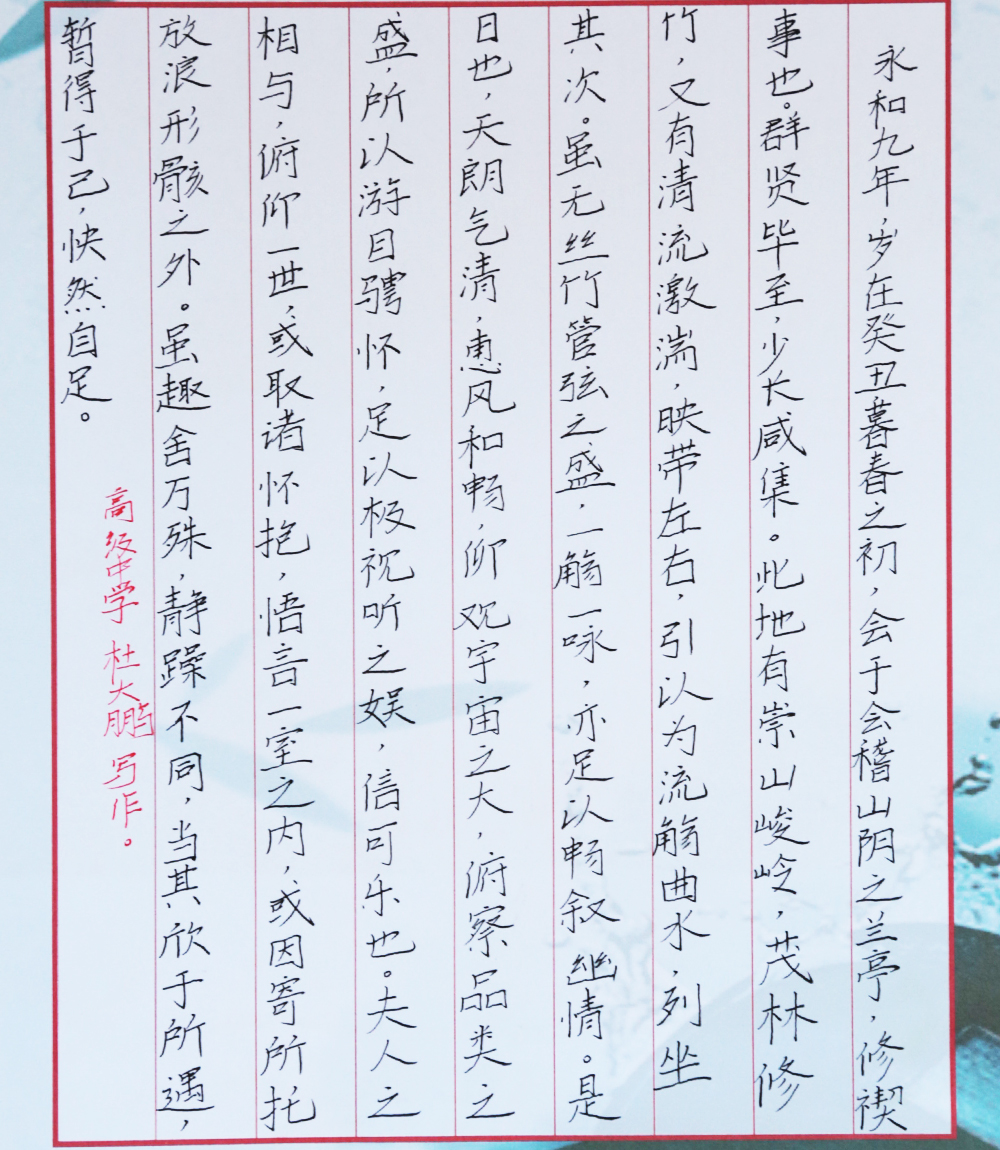 永和九年，岁在癸丑，暮春之初，会于会稽山阴之兰亭，修禊
事也。群贤毕至，少长咸集。此地有崇山峻岭，茂林修
竹，又有清流激湍，映带左右，引以为流觞曲水，列坐
其次。虽无丝竹管弦之盛，一觞一咏，亦足以畅叙幽情。是
日也，天朗气清，惠风和畅，仰观宇宙之大，俯察品类之
盛，所以游目骋怀，足以极视听之娱，信可乐也。夫人之
相与，俯仰一世，或取诸怀抱，悟言一室之内，或因寄所托
放浪形骸之外。虽趣舍万殊，静躁不同，当其欣于所遇，
暂得于己，快然自足。
高级中学 杜大鹏 写作。